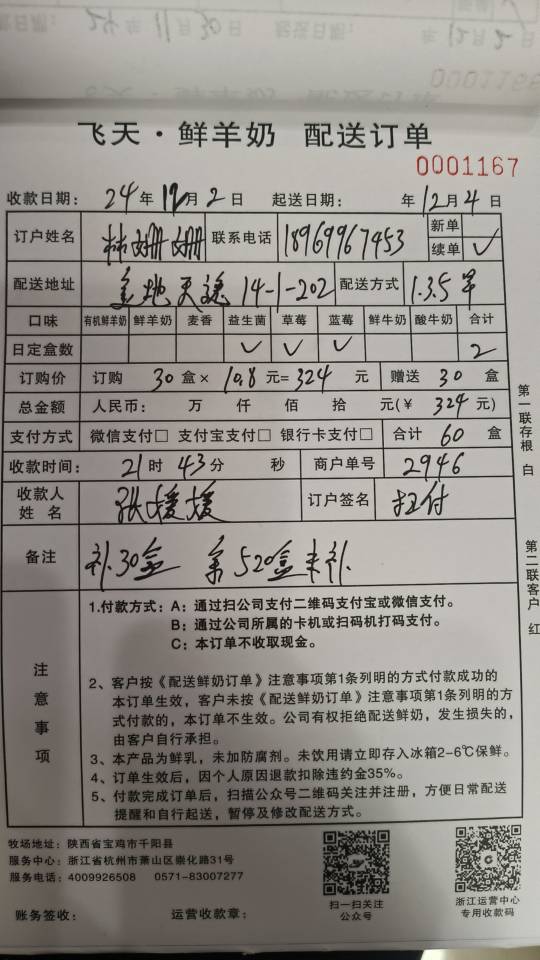 飞天·鲜羊奶 配送订单
0001167
收款日期： 24年 12月 2日 起送日期： 年 12月 4日
订户姓名 林姗姗 联系电话 18969967453 新单
续单 ✓
配送地址 14-1-202 配送方式 1.3.5 早
口味 有机鲜羊奶 鲜羊奶 麦香 益生菌 草莓 蓝莓 鲜牛奶 酸牛奶 合计
日定盒数 ✓ ✓ ✓ 2
订购价 订购 30 盒× 10.8 元= 324 元 赠送 30 盒
总金额 人民币： 万 仟 佰 拾 元(￥ 324 元)
支付方式 微信支付□ 支付宝支付□ 银行卡支付□ 合计 60 盒
收款时间： 21时 43分 秒 商户单号 2946
收款人姓名 张媛媛 订户签名 扫付
备注 补30盒 余520盒未补.
第一联存根 白
第二联客户 红
注意事项
1.付款方式：A：通过扫公司支付二维码支付宝或微信支付。
B：通过公司所属的卡机或扫码机打码支付。
C：本订单不收取现金。
2、客户按《配送鲜奶订单》注意事项第1条列明的方式付款成功的
本订单生效，客户未按《配送鲜奶订单》注意事项第1条列明的方
式付款的，本订单不生效。公司有权拒绝配送鲜奶，发生损失的，
由客户自行承担。
3、本产品为鲜乳，未加防腐剂。未饮用请立即存入冰箱2-6℃保鲜。
4、订单生效后，因个人原因退款扣除违约金35%。
5、付款完成订单后，扫描公众号二维码关注并注册，方便日常配送
提醒和自行起送，暂停及修改配送方式。
牧场地址：陕西省宝鸡市千阳县
服务中心：浙江省杭州市萧山区崇化路31号
服务电话：4009926508 0571-83007277
扫一扫关注
公众号
浙江运营中心
专用收款码
账务签收： 运营收款章：